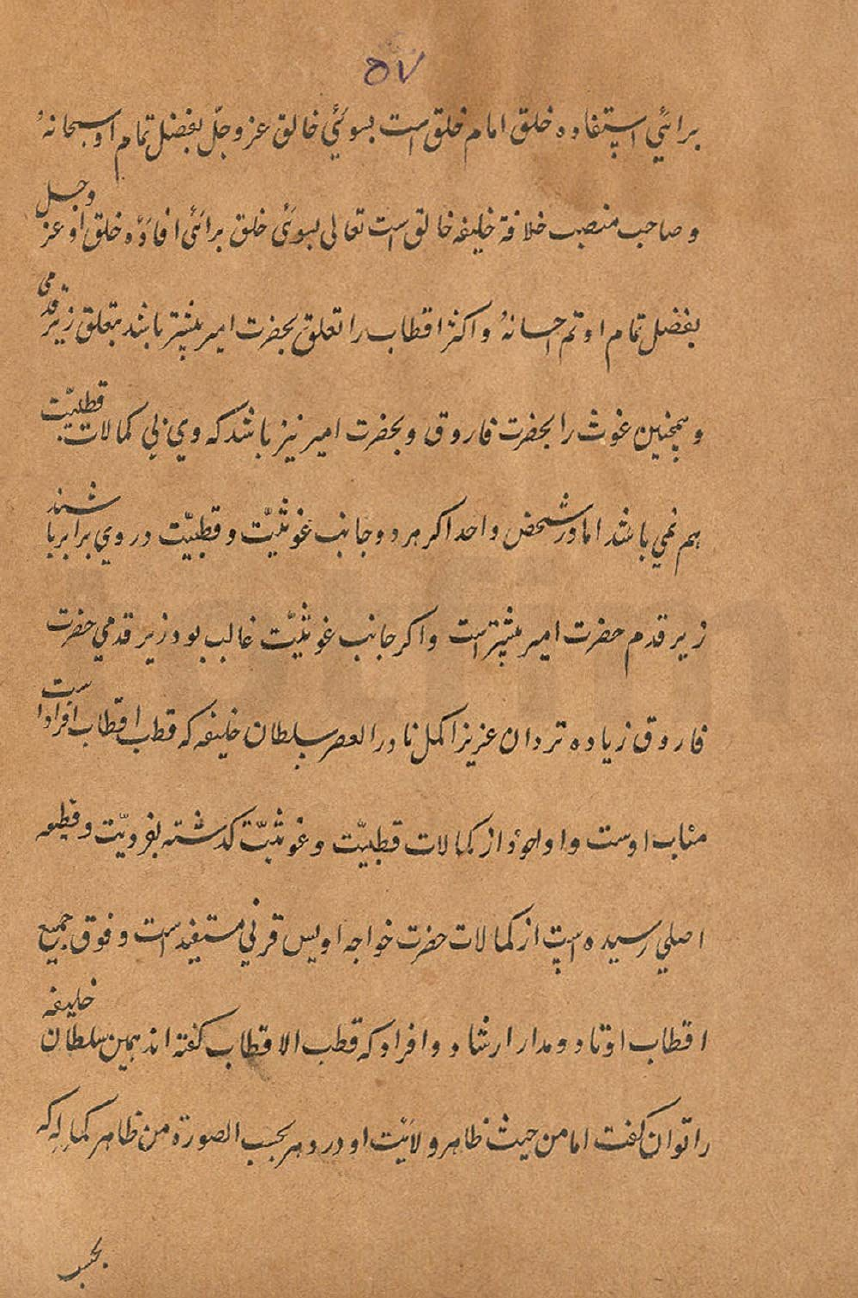 ۵۷
برائي استفاده خلق امام خلق است بسوئي خالق عز وجلّ بفضل تمام او سبحانهٗ
و صاحب منصب خلافة خليفه خالق است تعالى بسوئى خلق برائى افادهٔ خلق او عز وجل
بفضل تمام او تم احسانهٗ و اكثر اقطاب را تعلق بحضرت امير بيشتر باشد بتعلق زير قدمي
و همچنين غوث را بحضرت فاروق و بحضرت امير نيز باشد كه وي بي كمالات قطبيّت
هم نمي باشد اما در شخص واحد اكر هر دو جانب غوثيّت و قطبيّت در وي برابر باشند
زير قدم حضرت امير بيشتر است و اكر جانب غوثيّت غالب بود زير قدمي حضرت
فاروق زياده تر دان عزيز اكمل نادر العصر سلطان خليفه كه قطب اقطاب افراد است
مناب اوست و او از كمالات قطبيّت و غوثيّت كذشته بفرديّت و
اصلي رسيده است از كمالات حضرت خواجه اويس قرني مستفيد است و فوق جميع
اقطاب اوتاد و مدار ارشاد و افراد كه قطب الاقطاب كفته اند همين سلطان خليفه
را توان كفت اما من حيث ظاهر ولايّت او در دهر بحسب الصورة من ظاهر كماله كه
بحسب